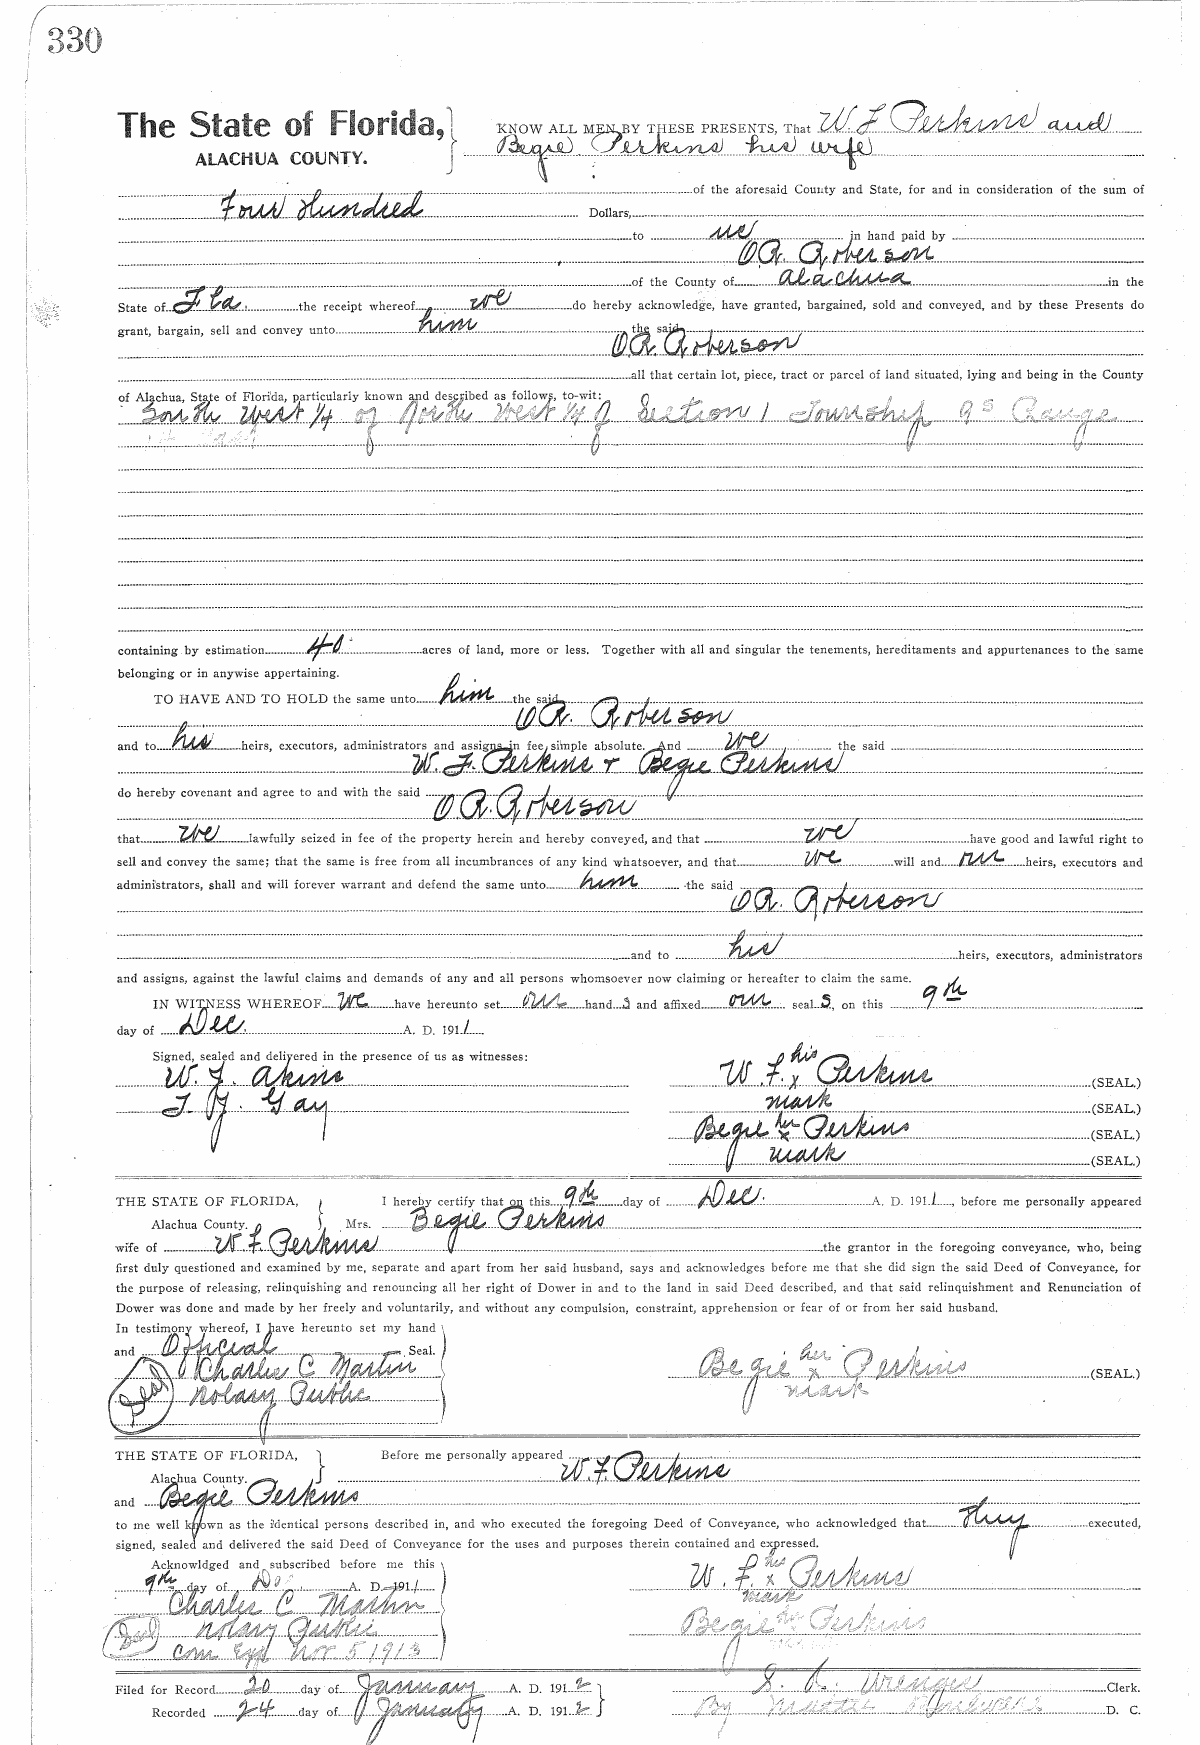 330
The State of Florida, KNOW ALL MEN BY THESE PRESENTS, That W. F. Perkins and
ALACHUA COUNTY. Begie Perkins his wife
of the aforesaid County and State, for and in consideration of the sum of
Four Hundred Dollars,
to us in hand paid by
O.R. Roberson
of the County of Alachua in the
State of Fla. the receipt whereof we do hereby acknowledge, have granted, bargained, sold and conveyed, and by these Presents do
grant, bargain, sell and convey unto him the said
O.R. Roberson
all that certain lot, piece, tract or parcel of land situated, lying and being in the County
of Alachua, State of Florida, particularly known and described as follows, to-wit:
South West 1/4 of North West 1/4 of Section 1 Township 9 S Range
containing by estimation 40 acres of land, more or less. Together with all and singular the tenements, hereditaments and appurtenances to the same
belonging or in anywise appertaining.
TO HAVE AND TO HOLD the same unto him the said
O R. Roberson
and to his heirs, executors, administrators and assigns in fee simple absolute. And we the said
W. F. Perkins + Begie Perkins
do hereby covenant and agree to and with the said
O R. Roberson
that we lawfully seized in fee of the property herein and hereby conveyed, and that we have good and lawful right to
sell and convey the same; that the same is free from all incumbrances of any kind whatsoever, and that we will and our heirs, executors and
administrators, shall and will forever warrant and defend the same unto him the said
O R. Roberson
and to his heirs, executors, administrators
and assigns, against the lawful claims and demands of any and all persons whomsoever now claiming or hereafter to claim the same.
IN WITNESS WHEREOF we have hereunto set our hand s and affixed our seal s, on this 9th
day of Dec. A. D. 1911
Signed, sealed and delivered in the presence of us as witnesses:
W. J. Akins W. F. his x Perkins (SEAL.)
T. J. Gay mark (SEAL.)
Begie her x Perkins (SEAL.)
mark (SEAL.)
THE STATE OF FLORIDA, I hereby certify that on this 9th day of Dec. A. D. 1911, before me personally appeared
Alachua County. Mrs. Begie Perkins
wife of W. F. Perkins the grantor in the foregoing conveyance, who, being
first duly questioned and examined by me, separate and apart from her said husband, says and acknowledges before me that she did sign the said Deed of Conveyance, for
the purpose of releasing, relinquishing and renouncing all her right of Dower in and to the land in said Deed described, and that said relinquishment and Renunciation of
Dower was done and made by her freely and voluntarily, and without any compulsion, constraint, apprehension or fear of or from her said husband.
In testimony whereof, I have hereunto set my hand
and Official Seal.
Charlie C Martin Begie her x Perkins (SEAL.)
Seal Notary Public mark
THE STATE OF FLORIDA, Before me personally appeared
Alachua County. W. F. Perkins
and Begie Perkins
to me well known as the identical persons described in, and who executed the foregoing Deed of Conveyance, who acknowledged that they executed,
signed, sealed and delivered the said Deed of Conveyance for the uses and purposes therein contained and expressed.
Acknowldged and subscribed before me this
9th day of Dec. A. D. 1911 W. F. his x Perkins
Charles C Martin mark
Seal Notary Public Begie her Perkins
Com Exp Nov 5 1913
Filed for Record 20 day of January A. D. 1912 S. Clerk.
Recorded 24 day of January A. D. 1912 By D. C.